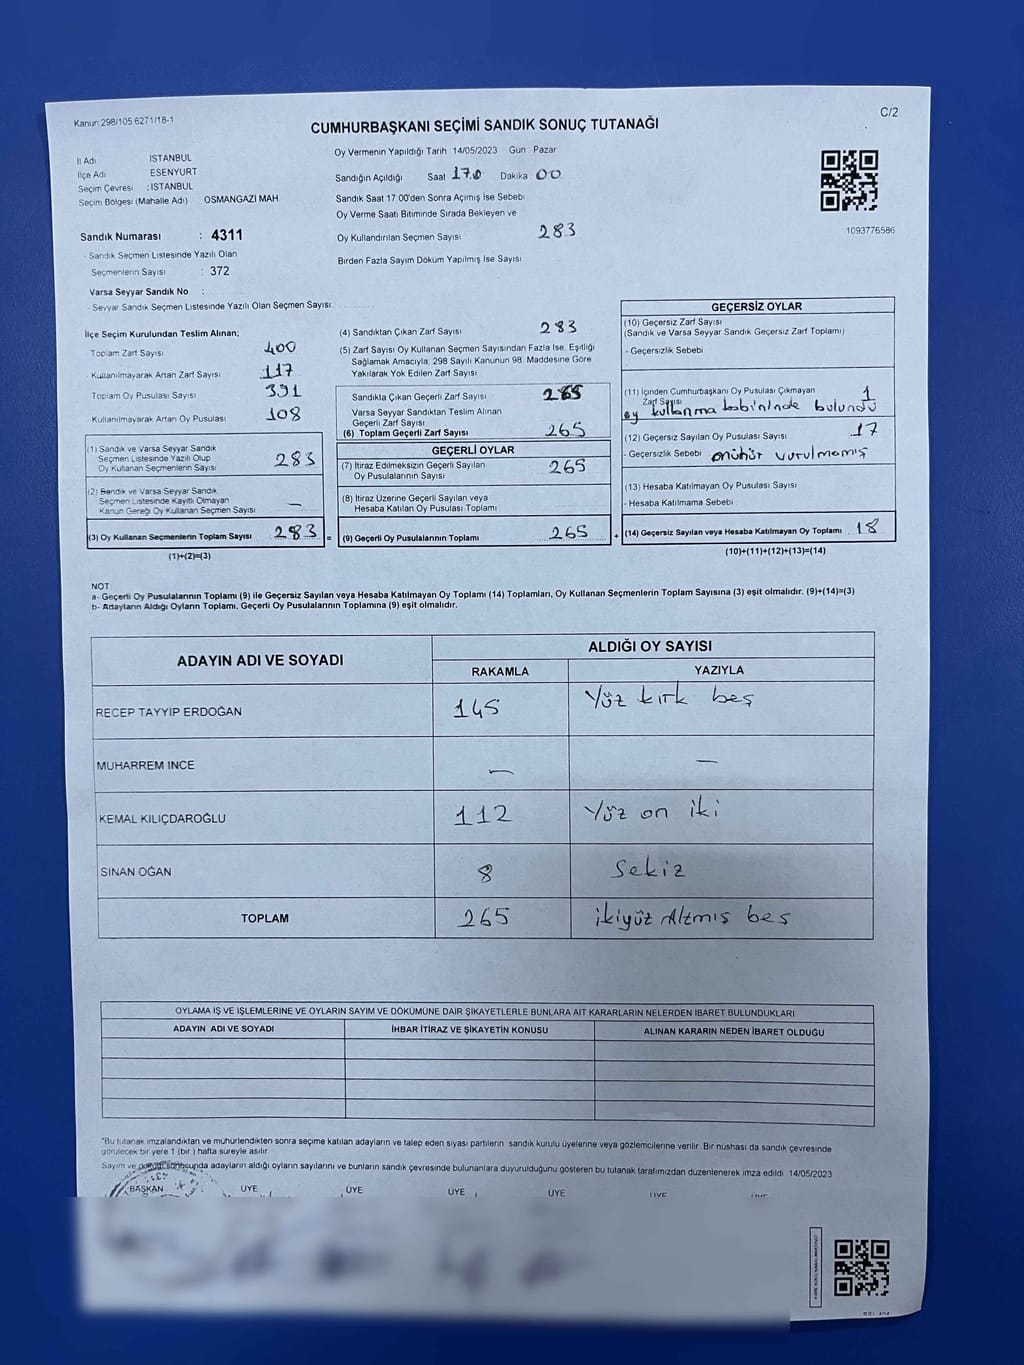 Kanun:298/105 6271/18-1
C/2
CUMHURBAŞKANI SEÇİMİ SANDIK SONUÇ TUTANAĞI
İl Adı İSTANBUL
İlçe Adı ESENYURT
Seçim Çevresi : İSTANBUL
Seçim Bölgesi (Mahalle Adı) OSMANGAZİ MAH.
Sandık Numarası : 4311
- Sandık Seçmen Listesinde Yazılı Olan
Seçmenlerin Sayısı : 372
Varsa Seyyar Sandık No :
- Seyyar Sandık Seçmen Listesinde Yazılı Olan Seçmen Sayısı:
Oy Vermenin Yapıldığı Tarih 14/05/2023 Gün : Pazar
Sandığın Açıldığı Saat 17.0 Dakika 00
Sandık Saat 17 00'den Sonra Açımış İse Sebebi
Oy Verme Saati Bitiminde Sırada Bekleyen ve
Oy Kullandırılan Seçmen Sayısı 283
Birden Fazla Sayım Döküm Yapılmış İse Sayısı
1093776586
İlçe Seçim Kurulundan Teslim Alınan;
Toplam Zarf Sayısı 400
Kullanılmayarak Artan Zarf Sayısı 117
Toplam Oy Pusulası Sayısı 391
Kullanılmayarak Artan Oy Pusulası 108
(1) Sandık ve Varsa Seyyar Sandık
Seçmen Listesinde Yazılı Olup
Oy Kullanan Seçmenlerin Sayısı 283
(2) Sandık ve Varsa Seyyar Sandık
Seçmen Listesinde Kayıtlı Olmayan
Kanun Gereği Oy Kullanan Seçmen Sayısı —
(3) Oy Kullanan Seçmenlerin Toplam Sayısı 283 =
(1)+(2)=(3)
(4) Sandıktan Çıkan Zarf Sayısı 283
(5) Zarf Sayısı Oy Kullanan Seçmen Sayısından Fazla İse, Eşitliği
Sağlamak Amacıyla, 298 Sayılı Kanunun 98. Maddesine Göre
Yakılarak Yok Edilen Zarf Sayısı
Sandıkta Çıkan Geçerli Zarf Sayısı 265
Varsa Seyyar Sandıktan Teslim Alınan
Geçerli Zarf Sayısı
(6) Toplam Geçerli Zarf Sayısı 265
GEÇERLİ OYLAR
(7) İtiraz Edilmeksizin Geçerli Sayılan
Oy Pusulalarının Sayısı 265
(8) İtiraz Üzerine Geçerli Sayılan veya
Hesaba Katılan Oy Pusulası Toplamı
(9) Geçerli Oy Pusulalarının Toplamı 265 +
GEÇERSİZ OYLAR
(10) Geçersiz Zarf Sayısı
(Sandık ve Varsa Seyyar Sandık Geçersiz Zarf Toplamı)
- Geçersizlik Sebebi
(11) İçinden Cumhurbaşkanı Oy Pusulası Çıkmayan
Zarf Sayısı 1
oy kullanma kabininde bulundu
(12) Geçersiz Sayılan Oy Pusulası Sayısı 17
- Geçersizlik Sebebi mühür vurulmamış
(13) Hesaba Katılmayan Oy Pusulası Sayısı
- Hesaba Katılmama Sebebi
(14) Geçersiz Sayılan veya Hesaba Katılmayan Oy Toplamı 18
(10)+(11)+(12)+(13)=(14)
NOT:
a- Geçerli Oy Pusulalarının Toplamı (9) ile Geçersiz Sayılan veya Hesaba Katılmayan Oy Toplamı (14) Toplamları, Oy Kullanan Seçmenlerin Toplam Sayısına (3) eşit olmalıdır. (9)+(14)=(3)
b- Adayların Aldığı Oyların Toplamı, Geçerli Oy Pusulalarının Toplamına (9) eşit olmalıdır.
ADAYIN ADI VE SOYADI
ALDIĞI OY SAYISI
RAKAMLA YAZIYLA
RECEP TAYYİP ERDOĞAN 145 Yüz kırk beş
MUHARREM İNCE — —
KEMAL KILIÇDAROĞLU 112 Yüz on iki
SİNAN OĞAN 8 Sekiz
TOPLAM 265 ikiyüz Altmış beş
OYLAMA İŞ VE İŞLEMLERİNE VE OYLARIN SAYIM VE DÖKÜMÜNE DAİR ŞİKAYETLERLE BUNLARA AİT KARARLARIN NELERDEN İBARET BULUNDUKLARI
ADAYIN ADI VE SOYADI İHBAR İTİRAZ VE ŞİKAYETİN KONUSU ALINAN KARARIN NEDEN İBARET OLDUĞU
*Bu tutanak imzalandıktan ve mühürlendikten sonra seçime katılan adayların ve talep eden siyasi partilerin sandık kurulu üyelerine veya gözlemcilerine verilir. Bir nüshası da sandık çevresinde
görülecek bir yere 1 (bir ) hafta süreyle asılır.
Sayım ve döküm sonucunda adayların aldığı oyların sayılarını ve bunların sandık çevresinde bulunanlara duyurulduğunu gösteren bu tutanak tarafımızdan düzenlenerek imza edildi 14/05/2023
BAŞKAN ÜYE ÜYE ÜYE ÜYE ÜYE